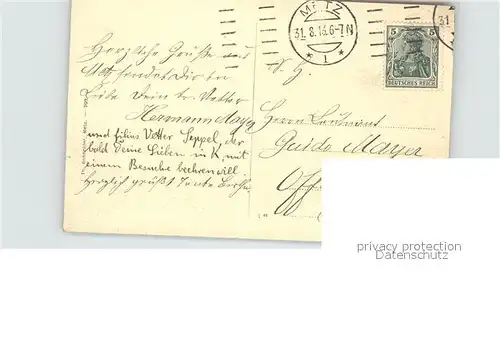 Herzliche Grüße aus
Metz sendet Dir in
Liebe Dein tr. Vetter
Hermann Mayer
und filius Vetter Seppel, der
bald Deine Lieben in K. mit
einem Besuche beehren will
Herzlich grüßt Tante
METZ
31.8.13.6-7N
* 1 *
5 5
DEUTSCHES REICH
31
S. H.
Herrn Leutnant
Guido Mayer
Off
privacy protection
Datenschutz